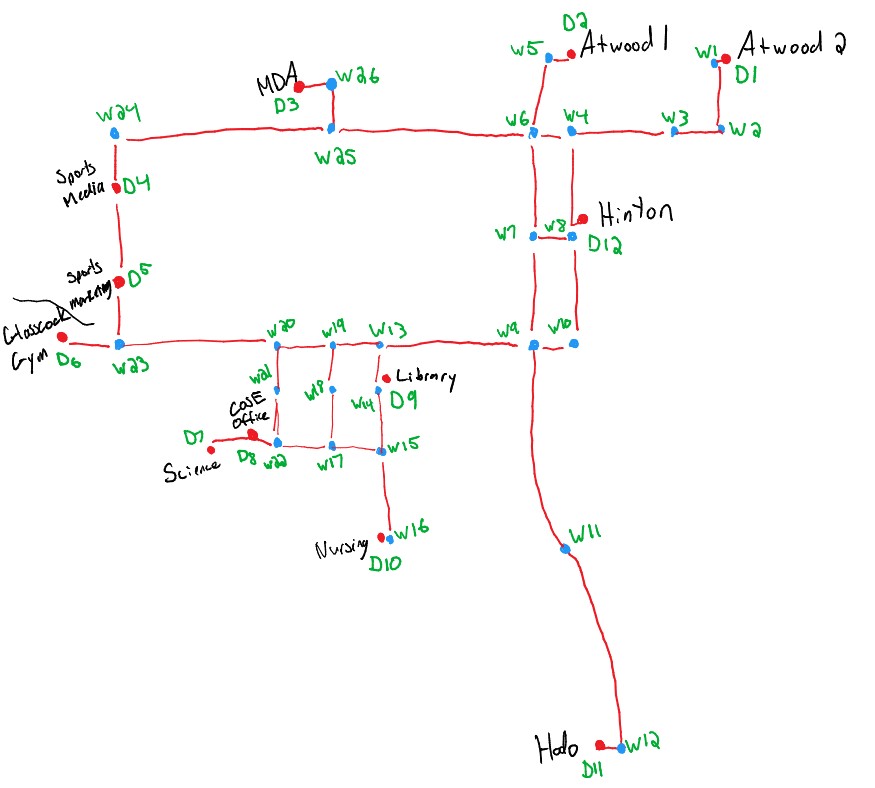 D2
W5
Atwood 1
W1
Atwood 2
D1
MDA
W26
D3
W24
W6
W4
W3
W2
W25
Sports
Media
D4
Hinton
W7
W8
D12
Sports
D5
Marketing
Glasscock
Gym
D6
W23
W20
W19
W13
W9
W10
W21
W18
Library
W14
D9
COSE
Office
D7
D8
W22
W17
W15
Science
Nursing
W16
D10
W11
Holo
D11
W12